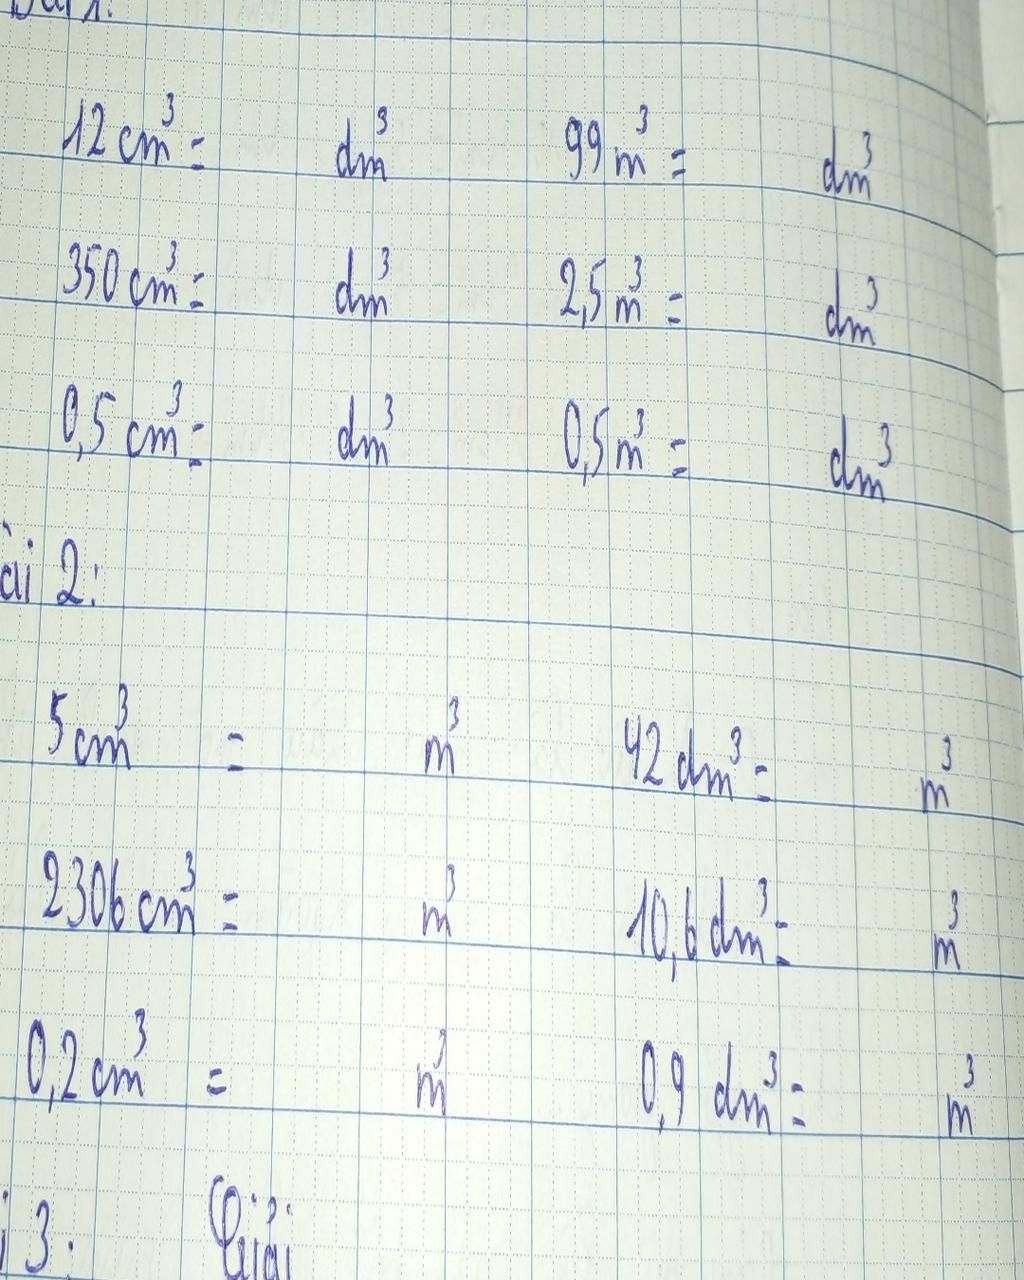 Bài 1:
12 cm³ = dm³ 99 m³ = dm³
350 cm³ = dm³ 2,5 m³ = dm³
0,5 cm³ = dm³ 0,5 m³ = dm³
ài 2:
5 cm³ = m³ 42 dm³ = m³
2306 cm³ = m³ 10,6 dm³ = m³
0,2 cm³ = m³ 0,9 dm³ = m³
i 3: Giải